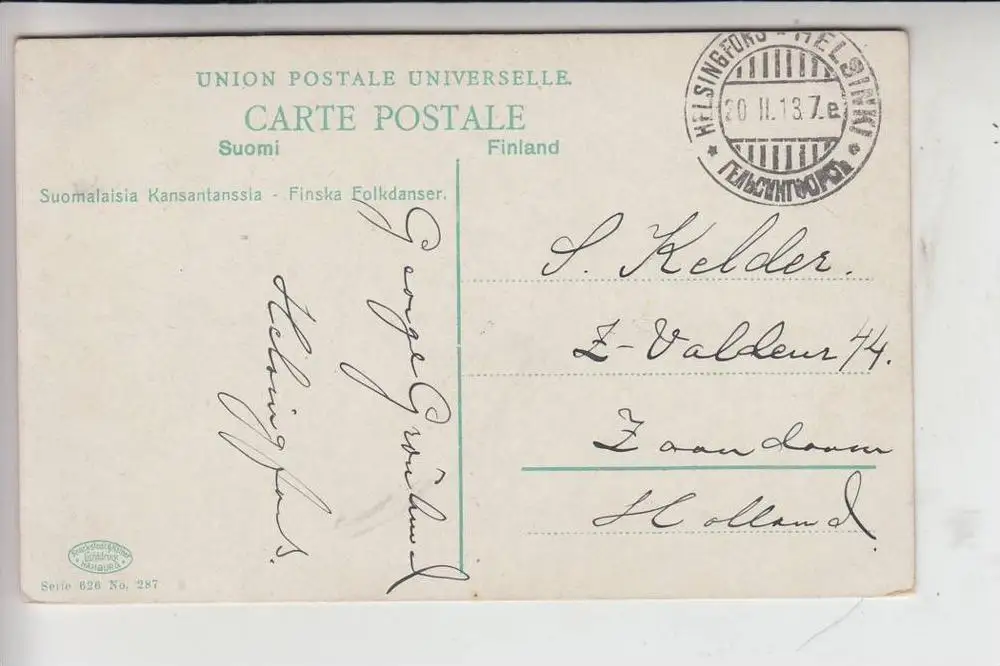 UNION POSTALE UNIVERSELLE.
CARTE POSTALE
Suomi Finland
Suomalaisia Kansantanssia - Finska Folkdanser.
HELSINGFORS - HELSINKI
20 II.13.7.e
ГЕЛЬСИНГФОРСЪ
S. Kelder.
Z-Valdeur 44.
Zaandaam
Holland.
George
Helsingfors.
HAMBURG
Serie 626 No. 287